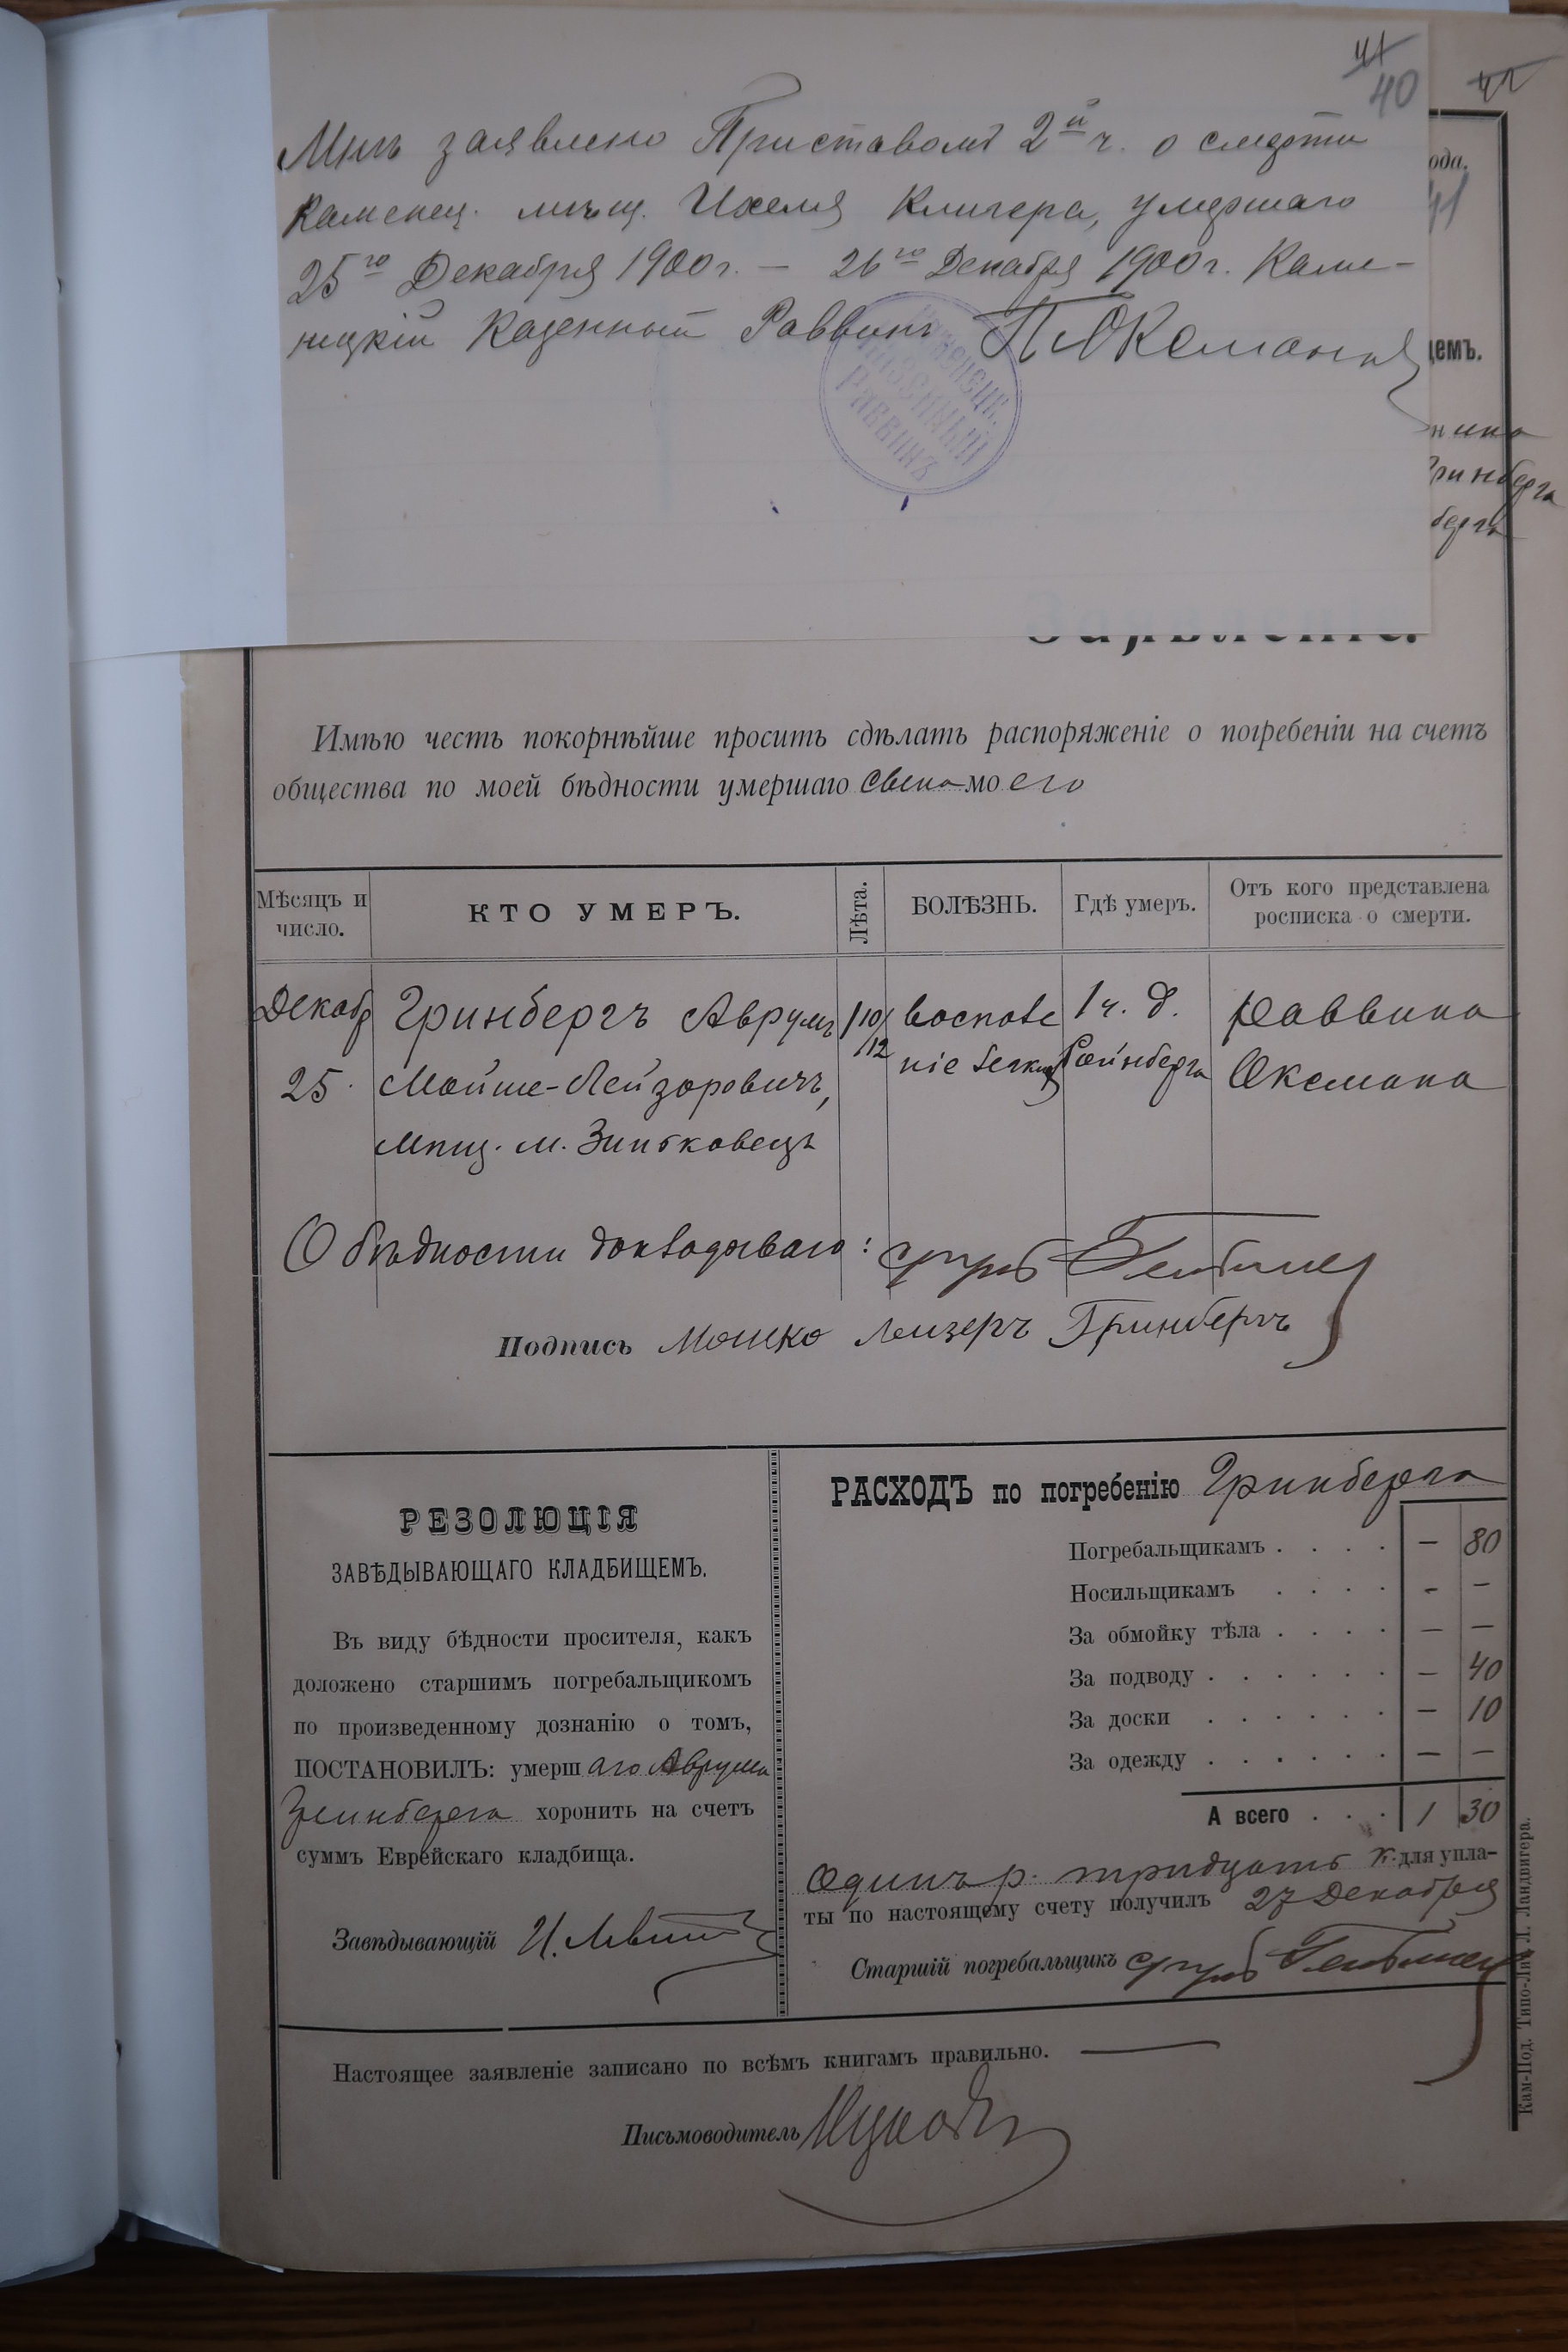 41
40
42
Мнѣ заявлено Приставомъ 2й ч. о смерти
Каменец. мѣщ. Ихеля Клигера, умершаго
25го Декабря 1900 г. — 26го Декабря 1900 г. Каме-
ницкій Казенный Раввинъ П. Оксманъ
Каменецк.
Казенный
Раввинъ
ода.
41
щемъ.
нина
Гринберга
берга
Заявленіе.
Имѣю честь покорнѣйше просить сдѣлать распоряженіе о погребеніи на счетъ
общества по моей бѣдности умершаго сына моего
Мѣсяцъ и число. КТО УМЕРЪ. Лѣта. БОЛѢЗНЬ. Гдѣ умеръ. Отъ кого представлена росписка о смерти.
Декабр Гринбергъ Аврумъ 10/12 воспале 1 ч. д. Раввина
25 Мойше-Лейзоровичъ, ніе легких Оксмана
мѣщ. м. Зиньковецъ
О бѣдности
Подпись Мошко Лейзеръ Гринбергъ
РЕЗОЛЮЦІЯ
ЗАВѢДЫВАЮЩАГО КЛАДБИЩЕМЪ.
Въ виду бѣдности просителя, какъ
доложено старшимъ погребальщикомъ
по произведенному дознанію о томъ,
ПОСТАНОВИЛЪ: умершаго Аврума
Гринберга хоронить на счетъ
суммъ Еврейскаго кладбища.
Завѣдывающій
РАСХОДЪ по погребенію Гринберга
Погребальщикамъ . . . . — 80
Носильщикамъ . . . . - —
За обмойку тѣла . . . . — —
За подводу . . . . . . — 40
За доски . . . . . . — 10
За одежду . . . . . . — —
А всего . . . 1 30
Одинъ р. тридцать к. для упла-
ты по настоящему счету получилъ 27 Декабря
Старшій погребальщикъ
Настоящее заявленіе записано по всѣмъ книгамъ правильно. —
Письмоводитель
Кам-Под. Типо-Лит. Л. Ландвигера.